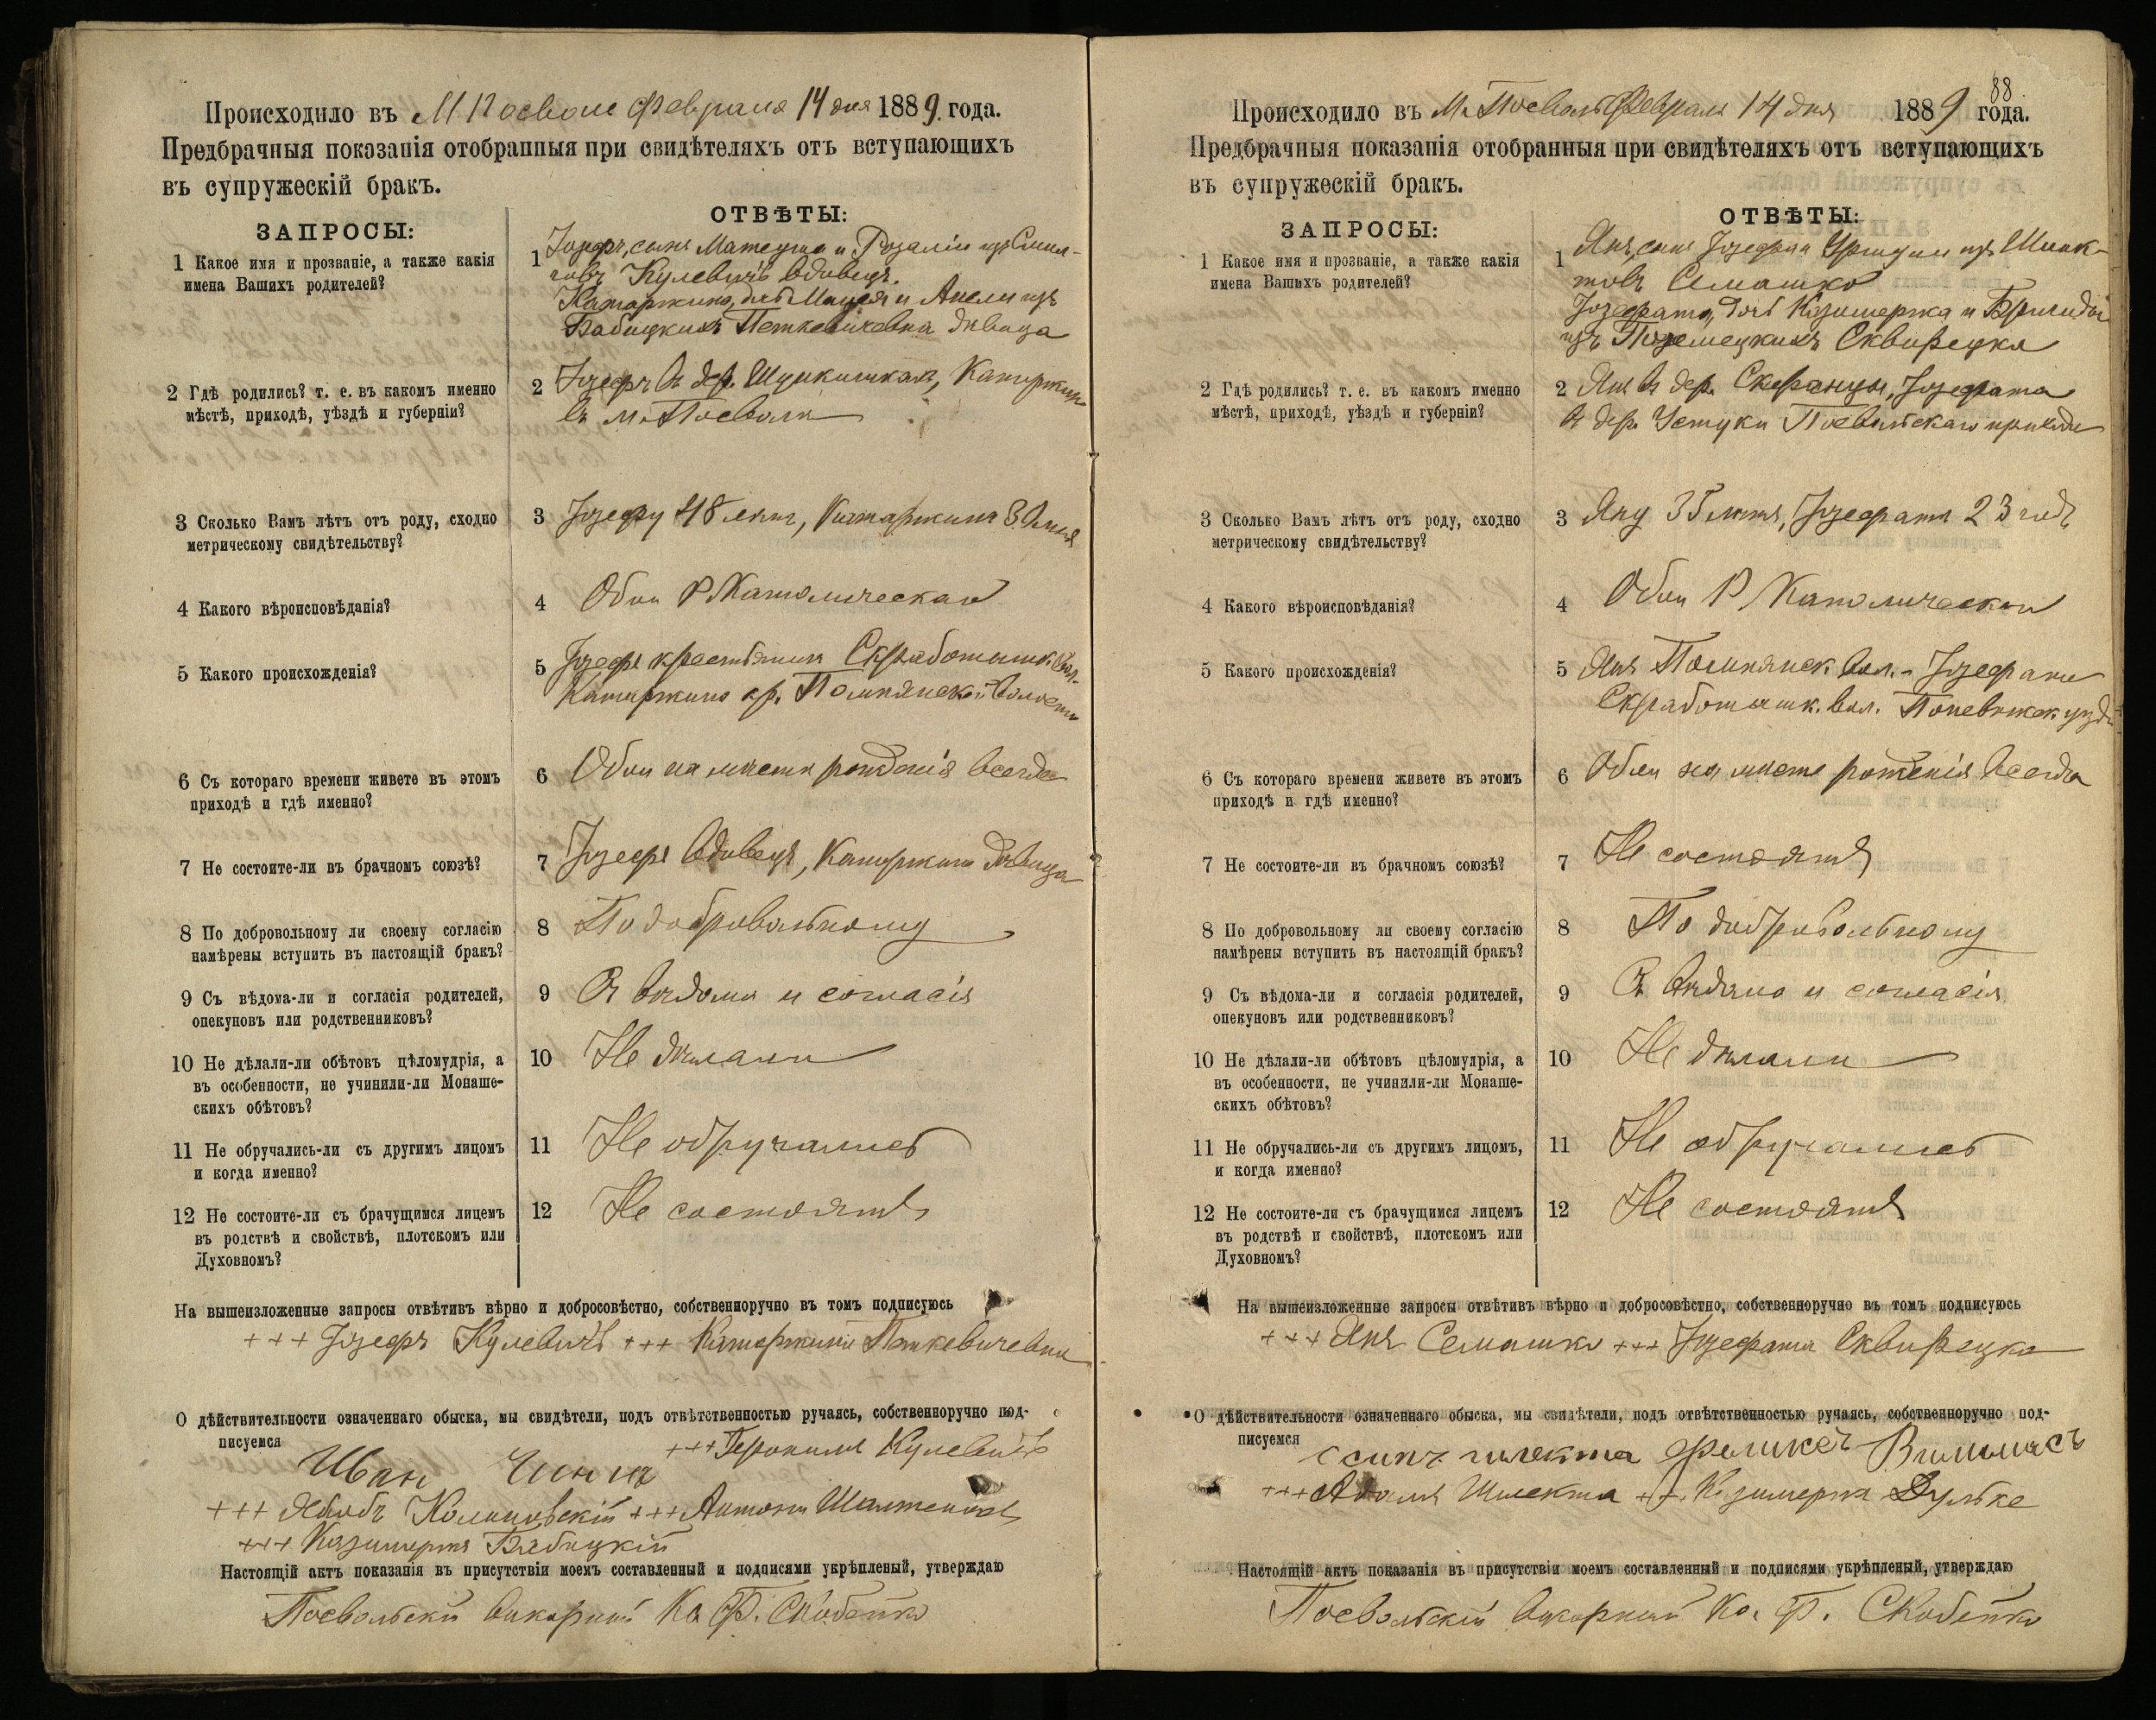 Происходило въ М Посволе Февраля 14 дня 1889. года.
Предбрачныя показанія отобранныя при свидѣтеляхъ отъ вступающихъ
въ супружескій бракъ.
ЗАПРОСЫ:
ОТВѢТЫ:
1 Какое имя и прозваніе, а также какія
имена Вашихъ родителей?
1 Іозефъ, сынъ Матеуша и Розаліи изъ
Кулевичъ вдовецъ.
Катаржина, дочь Мацея и Анели изъ
Бабицкихъ Петкевичевна дѣвица
2 Гдѣ родились? т. е. въ какомъ именно
мѣстѣ, приходѣ, уѣздѣ и губерніи?
2 Іозефъ въ дер. Катаржина
въ м. Посволи
3 Сколько Вамъ лѣтъ отъ роду, сходно
метрическому свидѣтельству?
3 Іозефу 48 лѣтъ, Катаржина
4 Какого вѣроисповѣданія?
4 Обои Р Католическаго
5 Какого происхожденія?
5 Іозефъ крестьянинъ Скработышк. вол.
Катаржина кр. Помпянской волости
6 Съ котораго времени живете въ этомъ
приходѣ и гдѣ именно?
6 Обои на мѣстѣ рожденія всегда
7 Не состоите-ли въ брачномъ союзѣ?
7 Іозефъ вдовецъ, Катаржина дѣвица
8 По добровольному ли своему согласію
намѣрены вступить въ настоящій бракъ?
8 По добровольному
9 Съ вѣдома-ли и согласія родителей,
опекуновъ или родственниковъ?
9 Съ вѣдома и согласія
10 Не дѣлали-ли обѣтовъ цѣломудрія, а
въ особенности, не учинили-ли Монаше-
скихъ обѣтовъ?
10 Не дѣлали
11 Не обручались-ли съ другимъ лицомъ
и когда именно?
11 Не обручались
12 Не состоите-ли съ брачущимся лицемъ
въ родствѣ и свойствѣ, плотскомъ или
Духовномъ?
12 Не состоятъ
На вышеизложенные запросы отвѣтивъ вѣрно и добросовѣстно, собственноручно въ томъ подписуюсь
+++ Іозефъ Кулевичъ +++ Катаржина Петкевичевна
О дѣйствительности означеннаго обыска, мы свидѣтели, подъ отвѣтственностью ручаясь, собственноручно под-
писуемся
+++ Геронимъ Кулевичъ
Иван
+++ Якобъ +++ Антони
+++ Казимержъ Бабицкій
Настоящій актъ показанія въ присутствіи моемъ составленный и подписями укрѣпленый, утверждаю
Посвольскій викарный Кс. Ф. Скобейко
88
Происходило въ М. Посволь Февраля 14 дня 1889 года.
Предбрачныя показанія отобранныя при свидѣтеляхъ отъ вступающихъ
въ супружескій бракъ.
ЗАПРОСЫ:
ОТВѢТЫ:
1 Какое имя и прозваніе, а также какія
имена Вашихъ родителей?
1 Янъ, сынъ Іозефа и Уршули изъ Шлек-
товъ Семашко
Іозефата, дочь Казимержа и Бригиды
изъ Скварецка
2 Гдѣ родились? т. е. въ какомъ именно
мѣстѣ, приходѣ, уѣздѣ и губерніи?
2 Янъ въ дер. Іозефата
въ дер. Устуки Посвольскаго прихода
3 Сколько Вамъ лѣтъ отъ роду, сходно
метрическому свидѣтельству?
3 Яну 35 лѣтъ, Іозефата 23 годъ
4 Какого вѣроисповѣданія?
4 Обои Р Католическаго
5 Какого происхожденія?
5 Янъ Помпянск вол. – Іозефата
Скработышк. вол. Поневежск уѣзда
6 Съ котораго времени живете въ этомъ
приходѣ и гдѣ именно?
6 Обои на мѣстѣ рожденія всегда
7 Не состоите-ли въ брачномъ союзѣ?
7 Не состоятъ
8 По добровольному ли своему согласію
намѣрены вступить въ настоящій бракъ?
8 По добровольному
9 Съ вѣдома-ли и согласія родителей,
опекуновъ или родственниковъ?
9 Съ вѣдома и согласія
10 Не дѣлали-ли обѣтовъ цѣломудрія, а
въ особенности, не учинили-ли Монаше-
скихъ обѣтовъ?
10 Не дѣлали
11 Не обручались-ли съ другимъ лицомъ,
и когда именно?
11 Не обручались
12 Не состоите-ли съ брачущимся лицемъ
въ родствѣ и свойствѣ, плотскомъ или
Духовномъ?
12 Не состоятъ
На вышеизложенные запросы отвѣтивъ вѣрно и добросовѣстно, собственноручно въ томъ подписуюсь
+++ Янъ Семашко +++ Іозефата Скварецка
О дѣйствительности означеннаго обыска, мы свидѣтели, подъ отвѣтственностью ручаясь, собственноручно под-
писуемся
осипъ шлекта феликсъ
+++ Адамъ Шлекта +++ Казимержъ Дульке
Настоящій актъ показанія въ присутствіи моемъ составленный и подписями укрѣпленый, утверждаю
Посвольскій викарный Кс. Ф. Скобейко